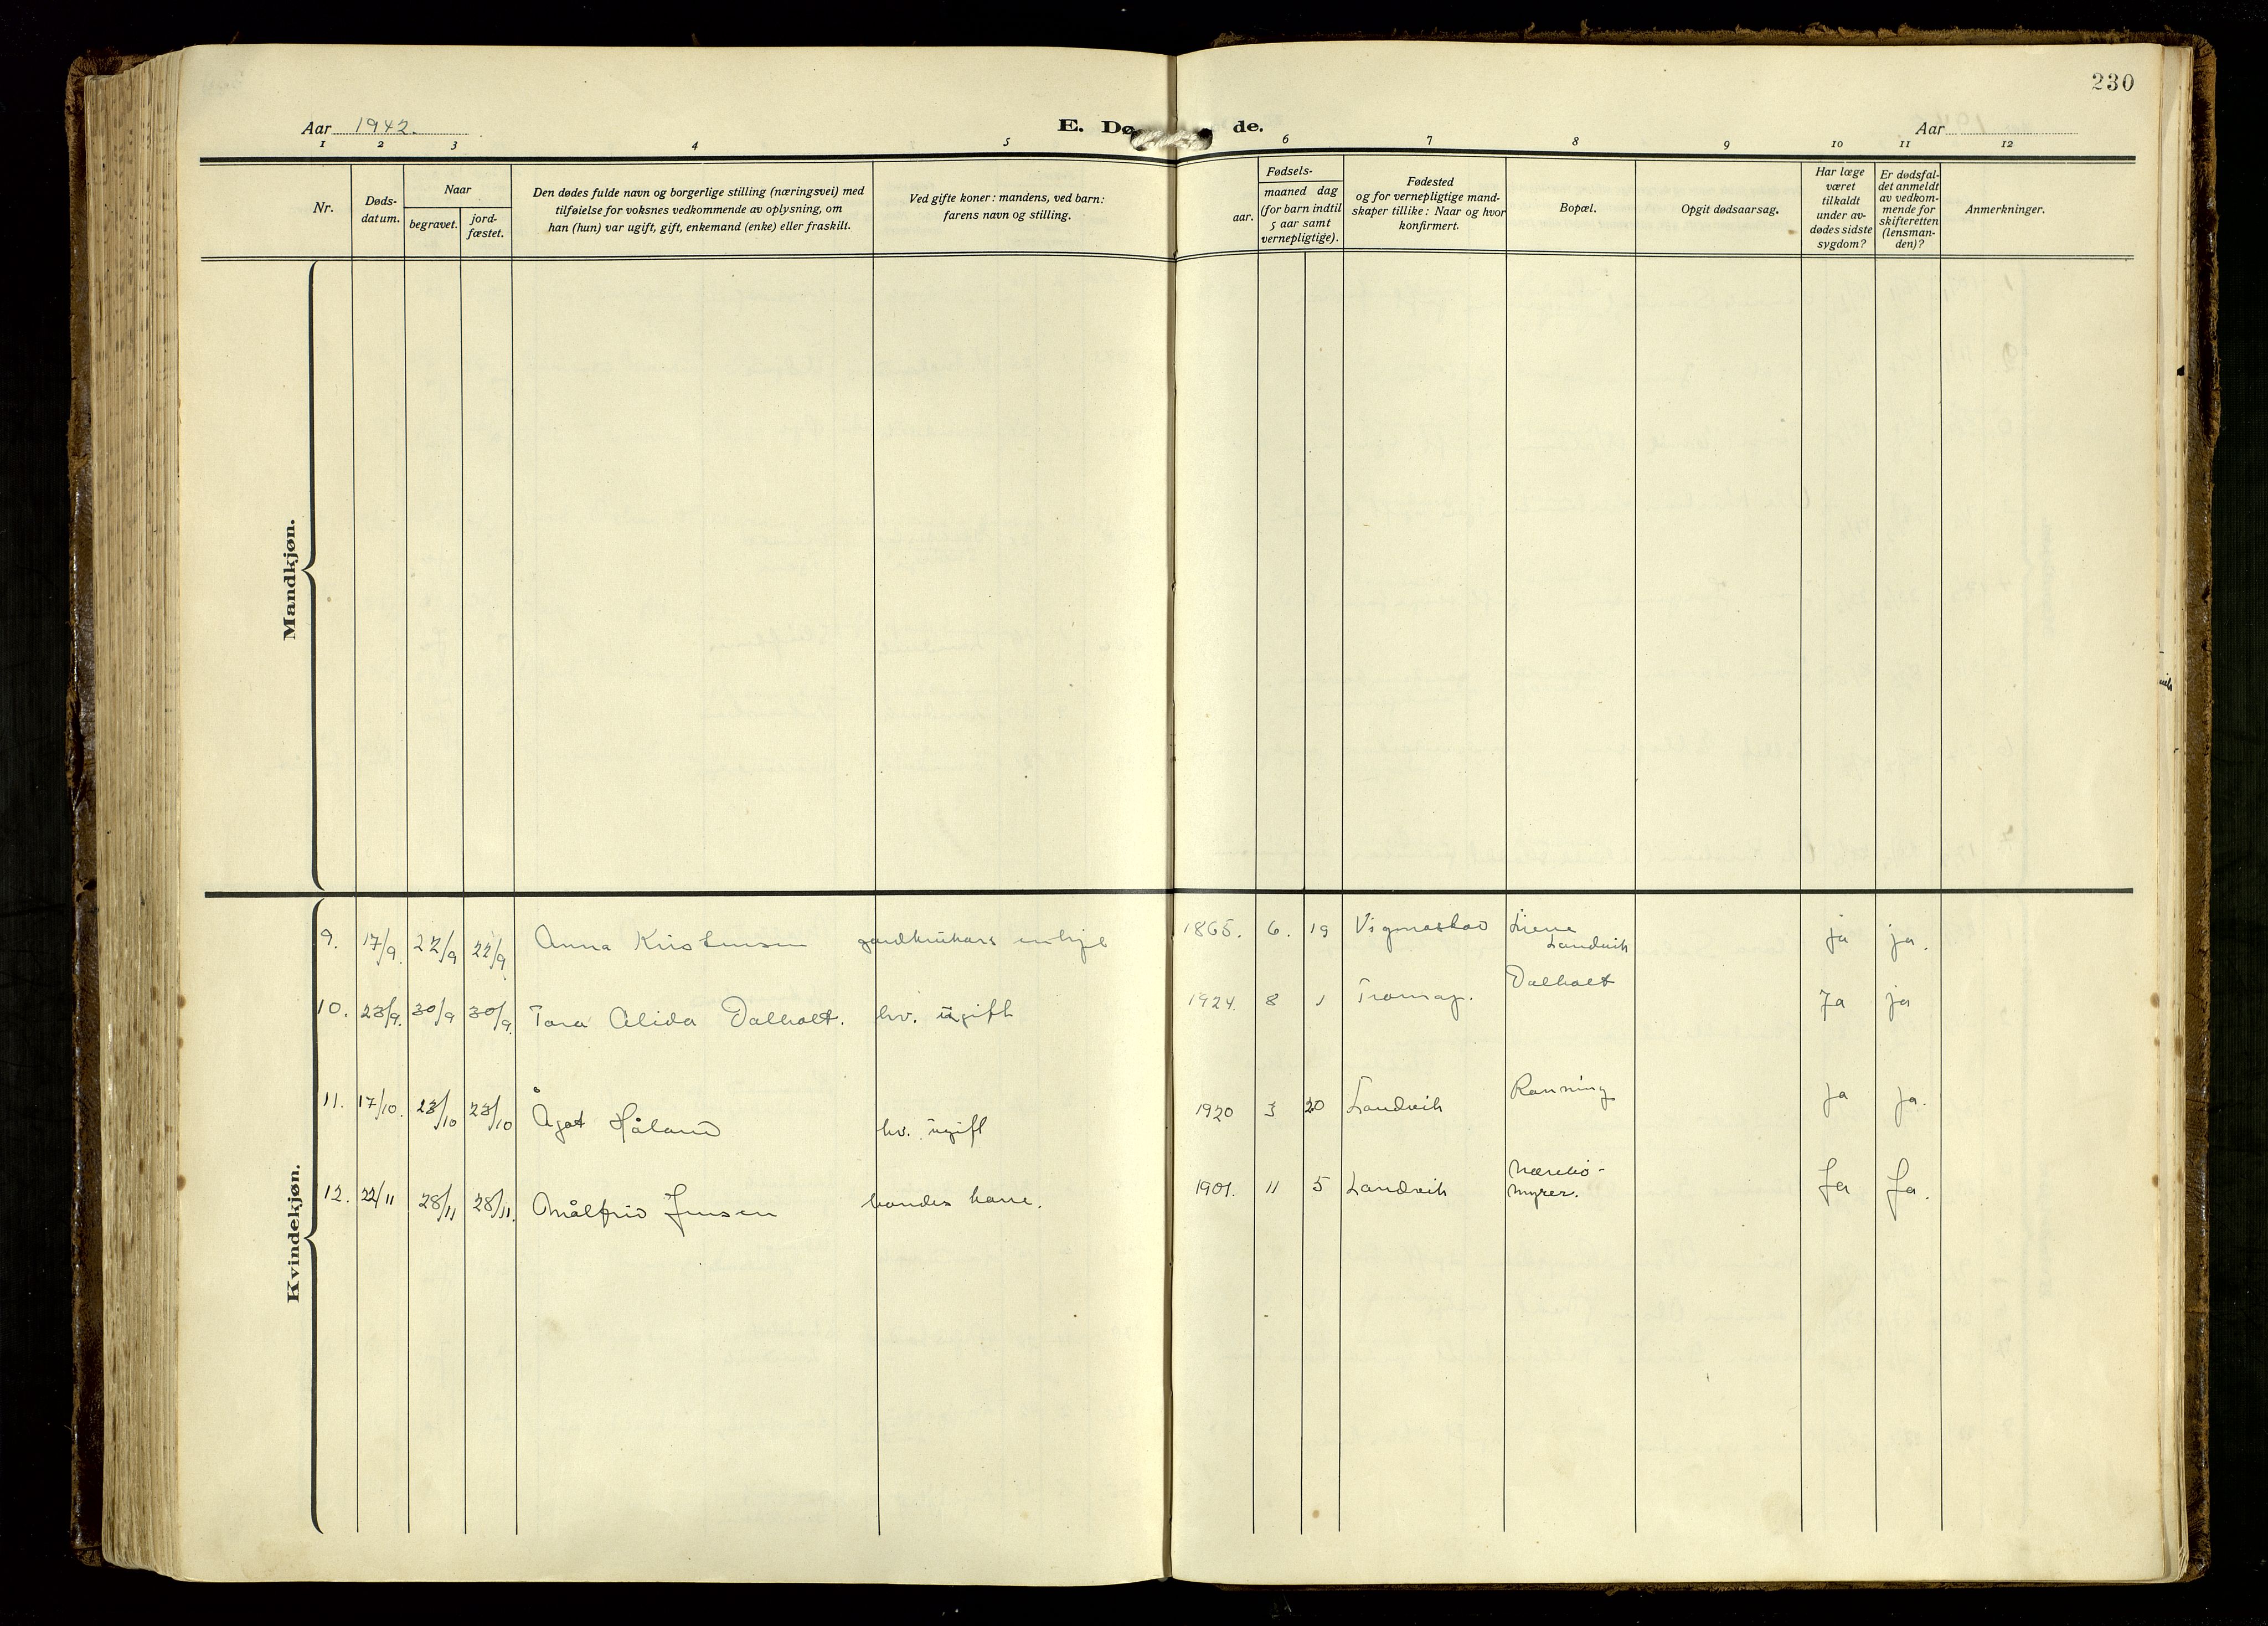 230
Aar 1942.
E. Dø
de.
Aar
1 2 3 4 5 6 7 8 9 10 11 12
Nr.
Døds-
datum.
Naar
begravet.
jord-
fæstet.
Den dødes fulde navn og borgerlige stilling (næringsvei) med
tilføielse for voksnes vedkommende av oplysning, om
han (hun) var ugift, gift, enkemand (enke) eller fraskilt.
Ved gifte koner: mandens, ved barn:
farens navn og stilling.
Fødsels-
aar.
maaned dag
(for barn indtil
5 aar samt
vernepligtige).
Fødested
og for vernepligtige mand-
skaper tillike: Naar og hvor
konfirmert.
Bopæl.
Opgit dødsaarsag.
Har læge
været
tilkaldt
under av-
dødes sidste
sygdom?
Er dødsfal-
det anmeldt
av vedkom-
mende for
skifteretten
(lensman-
den)?
Anmerkninger.
Mandkjøn.
Kvindekjøn.
9. 17/9. 22/9 22/9 Anna Kristensen gardbrukars enkje 1865. 6. 19 Vigmostad Liene
Landvik ja ja.
10. 23/9. 30/9 30/9. Tora Alida Dalholt. hv. ugift 1924. 8 1 Tromøy. Dalholt Ja ja
11. 17/10. 23/10 23/10 Ågot Håland hv. ugift 1920 3 20 Landvik Rønning ja ja.
12. 22/11 28/11 28/11. Målfrid Jensen bondes kone. 1901. 11 5 Landvik
myrer. Ja Ja.